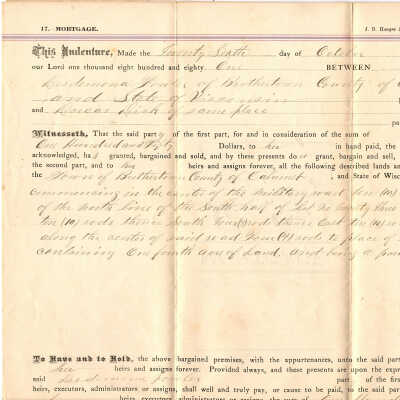 17. MORTGAGE. J. B. Hooper
This Indenture, Made the Twenty Sixth day of October
our Lord one thousand eight hundred and eighty One BETWEEN
Desdemona Fowler of Brothertown County of
and State of Wisconsin
and of same place
Witnesseth, That the said party of the first part, for and in consideration of the sum of
One Hundred and Fifty Dollars, to her in hand paid, the
acknowledged, has granted, bargained and sold, and by these presents does grant, bargain and sell,
the second part, and to his heirs and assigns forever, all the following described lands
the Town of Brothertown County of Calumet, and State of Wisc
commencing in the center of the Military road ten (10)
of the north line of the South half of Lot No twenty three
ten (10) rods thence South Four (4) rods thence East ten (10) ro
along the center of said road Four (4) rods to place of
containing One fourth acre of Land. and being a par
To Have and to Hold, the above bargained premises, with the appurtenances, unto the said part
heirs and assigns forever. Provided always, and these presents are upon the expr
said Desdemona Fowler part of the first
heirs, executors, administrators or assigns, shall well and truly pay, or cause to be paid, to the said part
heirs, executors, administrators or assigns, the sum of